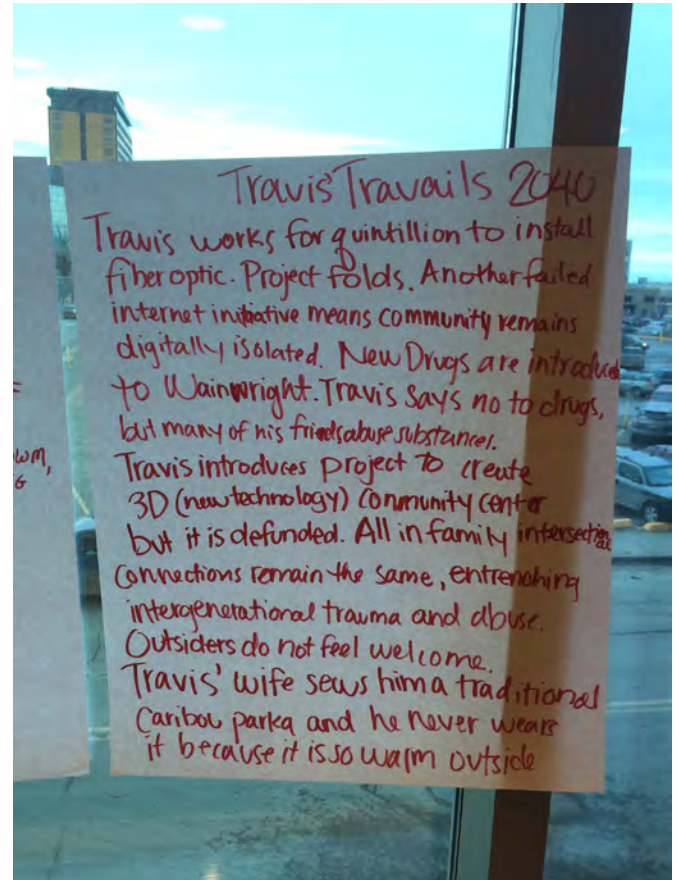 WM,
G
Travis' Travails 2040
Travis works for quintillion to install
fiber optic. Project folds. Another failed
internet initiative means community remains
digitally isolated. New Drugs are introduced
to Wainwright. Travis says no to drugs,
but many of his friends abuse substances.
Travis introduces project to create
3D (new technology) Community center
but it is defunded. All in family intersectional
Connections remain the same, entrenching
intergenerational trauma and abuse.
Outsiders do not feel welcome.
Travis' wife sews him a traditional
Caribou parka and he never wears
it because it is so warm outside